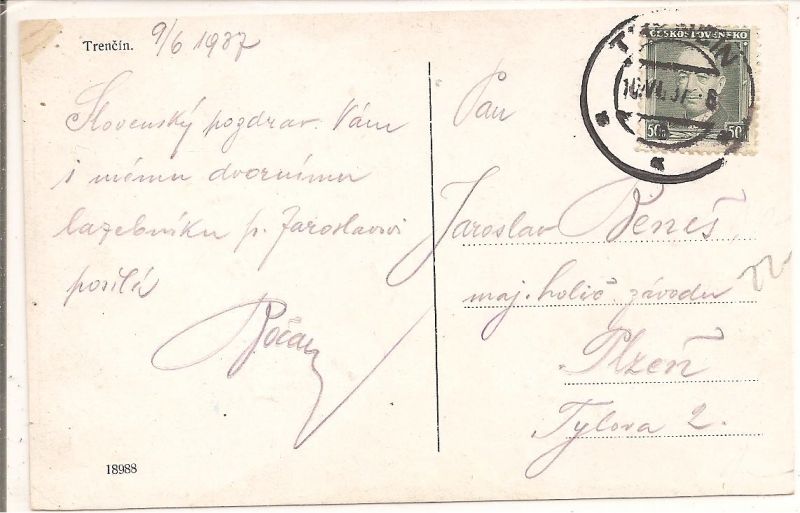 Trenčín.
9/6 1937
Slovenský pozdrav Vám
i mému dvornímu
lazebníku p. Jaroslavovi
posílá
18988
ČESKOSLOVENSKO
50 50
10.VI.37
Pan
Jaroslav Beneš,
maj. holič. závodu
Plzeň
Tylova 2.